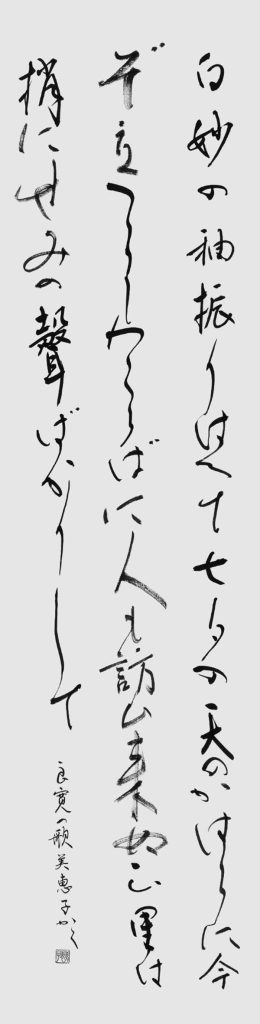 白妙の袖振りはへて七夕の天のかはらに今
ぞ立つらしわくらばに人も訪ひ来ぬ山里は
梢にせみの聲ばかりして
良寛の歌 美恵子かく